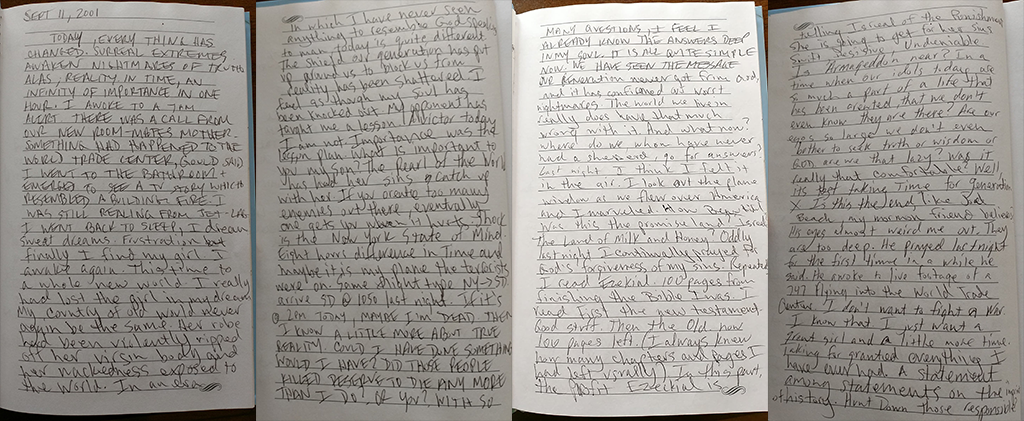 SEPT 11, 2001
TODAY, EVERYTHING HAS
CHANGED. SURREAL EXTREMES
AWAKEN NIGHTMARES OF TRUTH.
ALAS, REALITY IN TIME, AN
INFINITY OF IMPORTANCE IN ONE
HOUR. I AWOKE TO A 7AM
ALERT. THERE WAS A CALL FROM
OUR NEW ROOM-MATES MOTHER.
SOMETHING HAD HAPPENED TO THE
WORLD TRADE CENTER, SAID
I WENT TO THE BATHROOM &
EMERGED TO SEE A TV STORY WHICH
RESEMBLED A BUILDING FIRE. I
WAS STILL REALING FROM JET-LAG
I WENT BACK TO SLEEP, I dream
sweat dreams. Frustration but
finally I find my girl. I
awake again. This time to
a whole new world. I really
had lost the girl in my dream
My country of old would never
again be the same. Her robe
had been violently ripped
off her virgin body and
her nackedness exposed to
the World. In an idea
in which I have never seen
anything to resemble God speaking
to man, today is quite different
The shield our generation has put
up around us to buck us from
reality has been shattered. I
feel as though my soul has
been knocked out. My opponent has
taught me a lesson. A victor today
I am not. Importance was the
lesson plan. What is important to
you my son? The Pearl of the World
has had her sins catch up
with her. If you create too many
enemies out there eventually
one gets you when it hurts. Shock
is the New York State of Mind.
Eight hours difference in time and
maybe it is my plane the terrorists
were on. Same flight type NY → SD
arrive SD @ 1050 last night. If it's
@ 2pm TODAY, MAYBE I'M DEAD. THEN
I KNOW A LITTLE MORE ABOUT TRUE
REALITY. COULD I HAVE DONE SOMETHING
WOULD I HAVE? DID THOSE PEOPLE
KILLED DESERVE TO DIE ANY MORE
THAN I DO? OR YOU? WITH SO
MANY QUESTIONS, I FEEL I
ALREADY KNOW THE ANSWERS DEEP
IN MY SOUL. IT IS ALL QUITE SIMPLE
NOW. WE HAVE SEEN THE MESSAGE
OUR GENERATION never got from God,
and it has confirmed our worst
nightmares. The world we live in
really does have that much
wrong with it. And what now?
Where do we whom have never
had a sheperd, go for answers?
Last night I think I felt it
in the air. I look out the plane
window as we flew over America
and I marveled. How Beautiful
Was this the promise land, Israel
The Land of Milk and Honey. Oddly
last night I continually prayed for
God's forgiveness of my sins. Repeated
I read Ezekial 100 pages from
finishing the Bible I was. I
read first the new testament.
Good start. Then the Old now
100 pages left. (I always knew
how many chapters and pages I
had left usually) In this part,
the profit Ezechial is
telling Isreal of the Punishment
she is going to get for her sins
Swift Serious Undeniable
Is Armageddon near? In a
time when our idols today are
so much a part of a life that
has been created that we don't
even know they are there? Are our
egos so large we don't even
bother to seek truth or wisdom or
God? are we that lazy? was it
really that comfortable? Well,
its test taking time for generation
X. Is this the end like
Beach, my mormon friend believes
His eyes almost weird me out. They
are too deep. He prayed last night
for the first time in a while he
said. He awoke to live footage of a
747 flying into the World Trade
Center. I don't want to fight a War.
I know that I just want a
great girl and a little more time.
Taking for granted everything I
have ever had. A statement
among statements on the
of history. Hunt Down those responsible